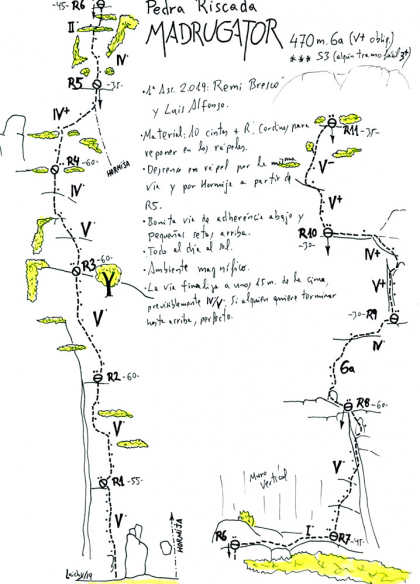 Pedra Riscada
MADRUGATOR
470 m. 6a (V+ oblig.)
*** S3 (algún tramo fácil 3+)
• 1ª Asc. 2019: Remi Bresco
y Luis Alfonso.
• Material: 10 cintas + R. Cordinos para
reponer en los rápeles.
• Descenso en rápel por la misma
vía y por Hormija a partir de
R5.
• Bonita vía de adherencia abajo y
pequeñas setas arriba.
• Todo el día al sol.
• Ambiente magnífico.
• La vía finaliza a unos 15 m. de la cima,
previsiblemente IV/V. Si alguien quiere terminar
hasta arriba, perfecto.
-45- R6
II
IV
R5 -35-
IV+
HORMIJA
R4 -60-
IV
V
-60-
R3
V
R2 -60-
V
R1 -55-
V
HORMIJA
Luichy/19
R11 -35-
V
V+
R10
-30-
IV+
V+
-30- R9
IV
6a
R8 -60-
V
Muro
Vertical
R6
I
R7 -45-